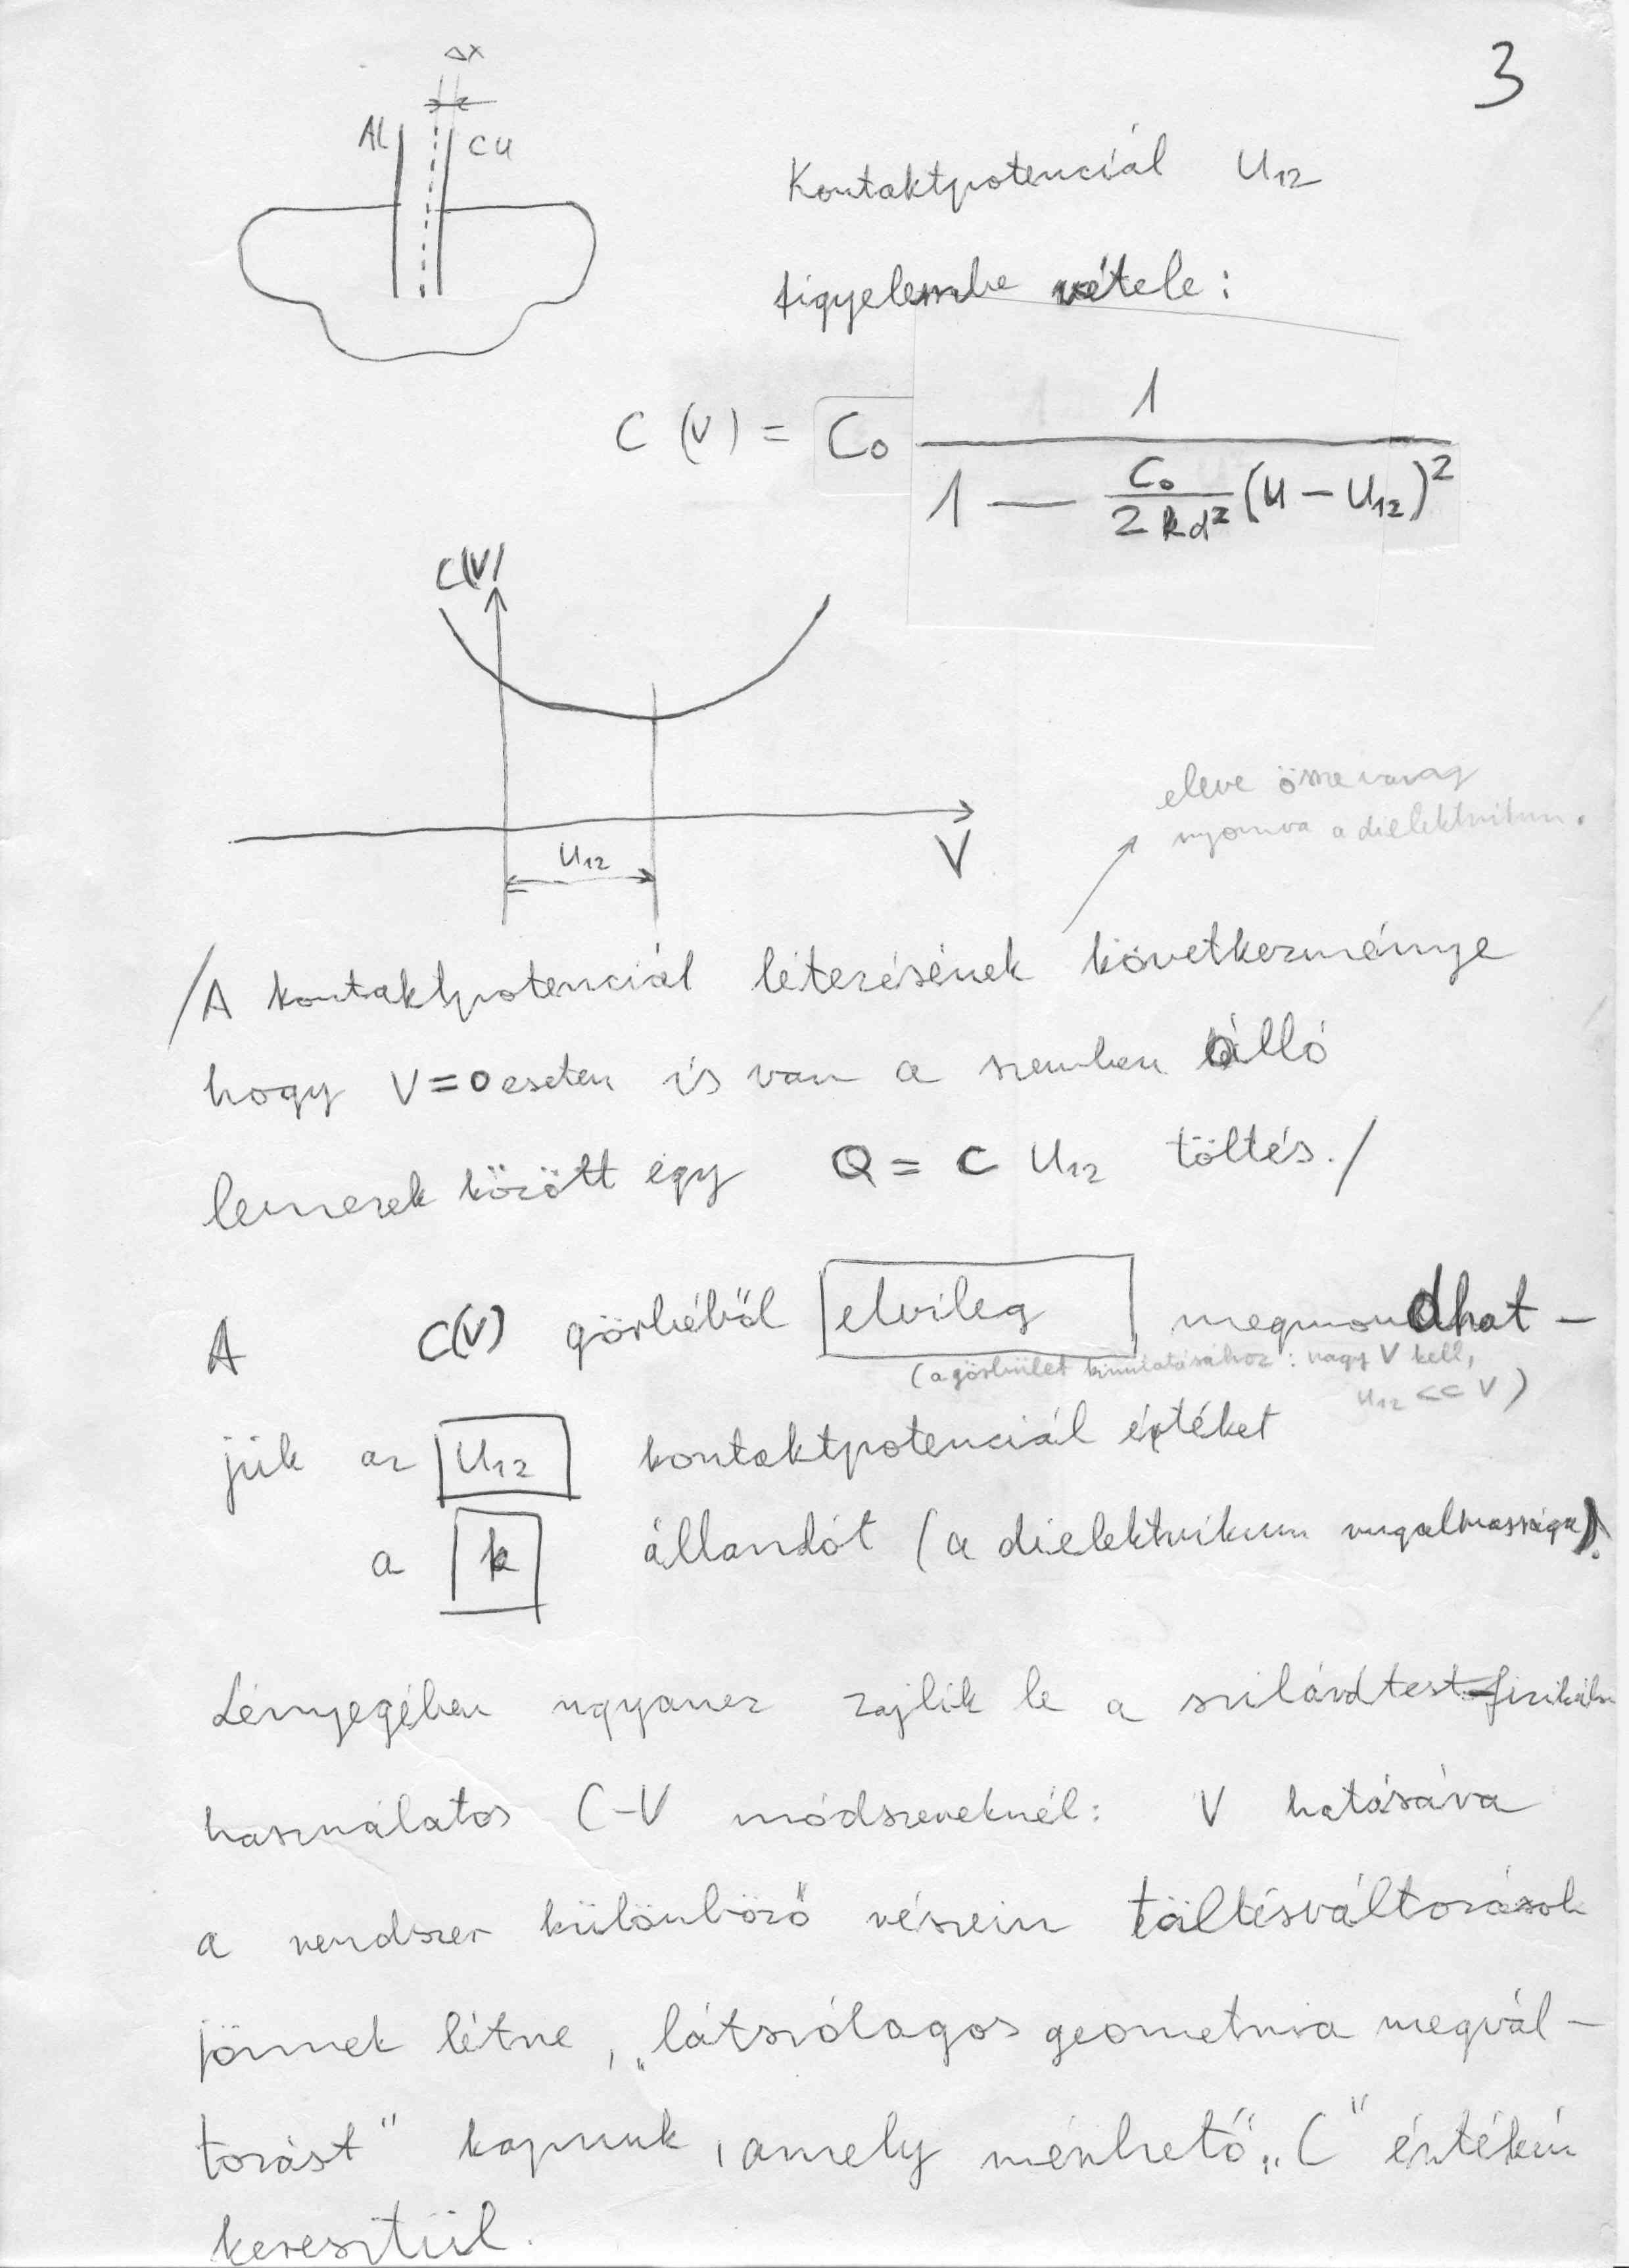 3
Δx
Al
Cu
Kontaktpotenciál U₁₂
figyelembe vétele:
C(V) = C₀ \frac{1}{1 - \frac{C₀}{2kd²}(U - U₁₂)²}
C(V)
U₁₂
V
eleve össze van
nyomva a dielektrikum.
/A kontaktpotenciál létezésének következménye
hogy V=0 esetén is van a szemben álló
lemezek között egy Q = C U₁₂ töltés./
A C(V) görbéből elvileg megmondhat-
(a görbület kimutatásához: nagy V kell,
U₁₂ << V)
juk az U₁₂ kontaktpotenciál értéket
a k állandót (a dielektrikum rugalmassága).
Lényegében ugyanez zajlik le a szilárdtest-fizikában
használatos C-V módszereknél: V hatására
a rendszer különböző részein töltésváltozások
jönnek létre, „látszólagos geometria megvál-
tozást" kapunk, amely mérhető „C" értékén
keresztül.